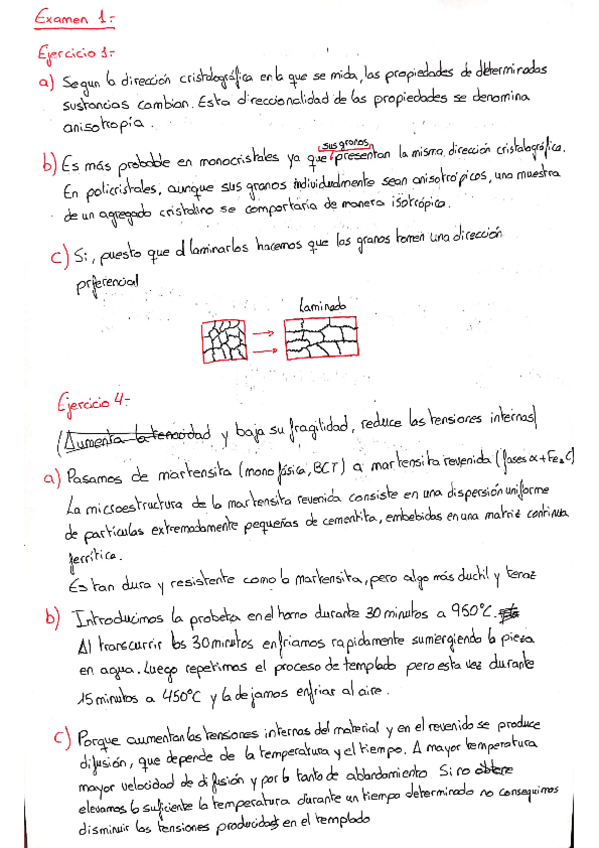 Examen 1:-
Ejercicio 1:-
a) Segun la dirección cristalográfica en la que se mida, las propiedades de determinadas
sustancias cambian. Esta direccionalidad de las propiedades se denomina
anisotropía.
sus granos
b) Es más probable en monocristales ya que presentan la misma dirección cristalográfica.
En policristales, aunque sus granos individualmente sean anisotrópicos, una muestra
de un agregado cristalino se comportaría de manera isotrópica.
c) Si, puesto que al laminarlos hacemos que los granos tomen una dirección
prferencial
Laminado
Ejercicio 4:-
(Aumenta la tenacidad y baja su fragilidad, reduce las tensiones internas)
a) Pasamos de martensita (monofásica, BCT) a martensita revenida (fases α + Fe3C)
La microestructura de la martensita revenida consiste en una dispersión uniforme
de partículas extremadamente pequeñas de cementita, embebidas en una matriz continua
ferrítica.
Es tan dura y resistente como la martensita, pero algo más ductil y tenaz
b) Introducimos la probeta en el horno durante 30 minutos a 950°C.
Al transcurrir los 30 minutos enfriamos rapidamente sumergiendo la pieza
en agua. Luego repetimos el proceso de templado pero esta vez durante
15 minutos a 450°C y la dejamos enfriar al aire.
c) Porque aumentan las tensiones internas del material y en el revenido se produce
difusión, que depende de la temperatura y el tiempo. A mayor temperatura
mayor velocidad de difusión y por lo tanto de ablandamiento. Si no
elevamos lo suficiente la temperatura durante un tiempo determinado no conseguimos
disminuir las tensiones producidas en el templado